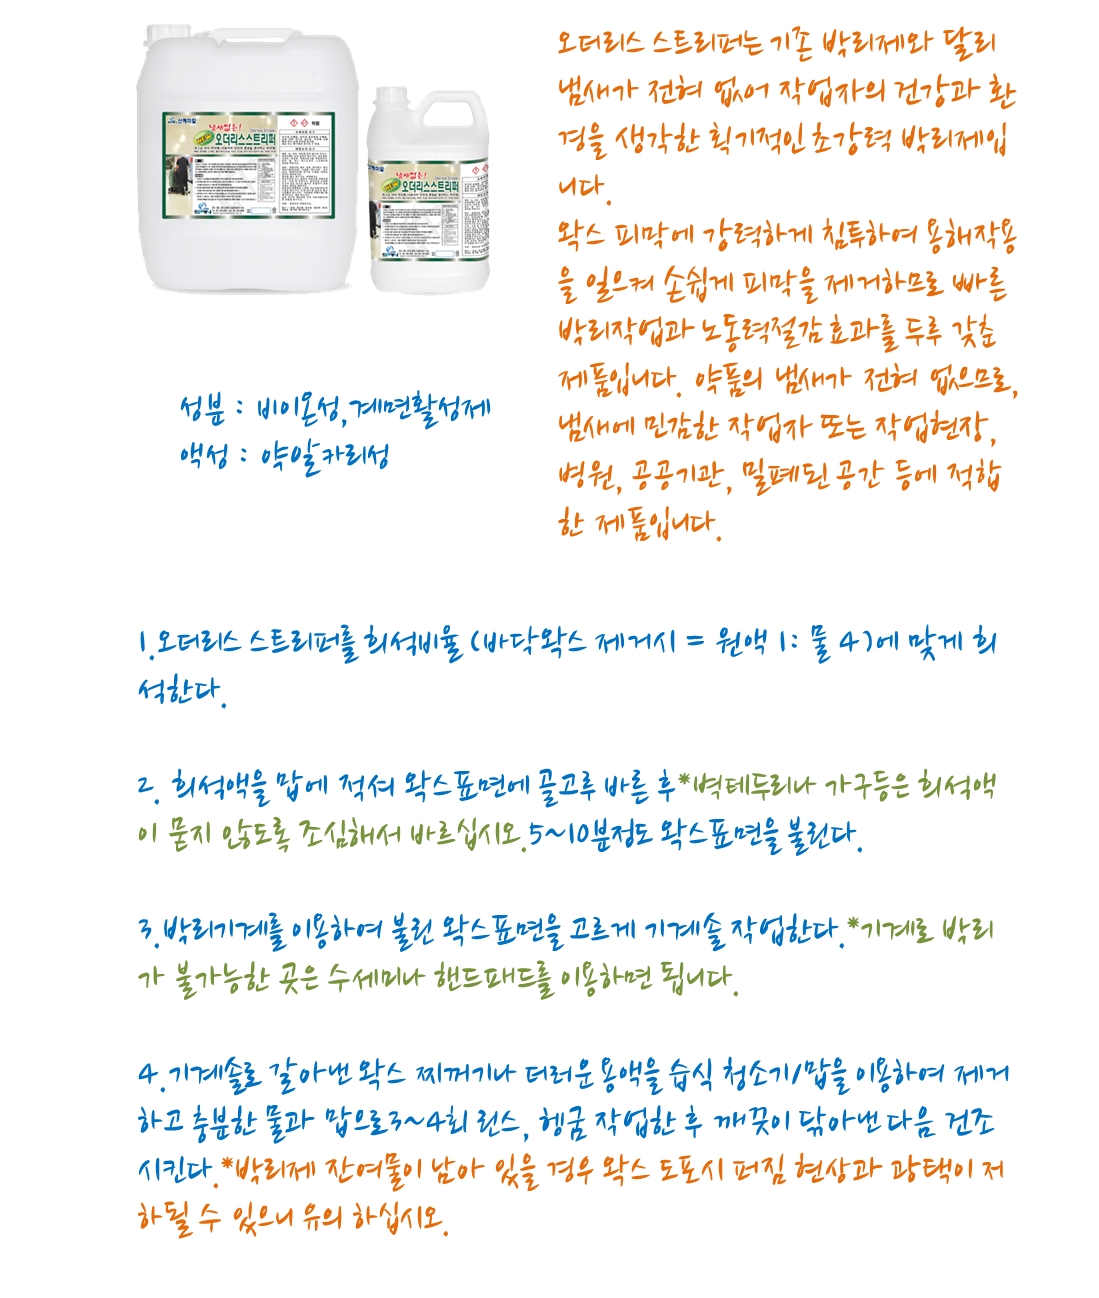 신케미칼
냄새없는!
NEW
오더리스스트리퍼
냄새없는!
오더리스스트리퍼
오더리스 스트리퍼는 기존 박리제와 달리
냄새가 전혀 없어 작업자의 건강과 환
경을 생각한 획기적인 초강력 박리제입
니다.
왁스 피막에 강력하게 침투하여 용해작용
을 일으켜 손쉽게 피막을 제거하므로 빠른
박리작업과 노동력절감 효과를 두루 갖춘
제품입니다. 약품의 냄새가 전혀 없으므로,
냄새에 민감한 작업자 또는 작업현장,
병원, 공공기관, 밀폐된 공간 등에 적합
한 제품입니다.
성분 : 비이온성,계면활성제
액성 : 약알카리성
1.오더리스 스트리퍼를 희석비율 (바닥왁스 제거시 = 원액 1: 물 4)에 맞게 희
석한다.
2. 희석액을 맙에 적셔 왁스표면에 골고루 바른 후*벽테두리나 가구등은 희석액
이 묻지 않도록 조심해서 바르십시오.5~10분정도 왁스표면을 불린다.
3.박리기계를 이용하여 불린 왁스표면을 고르게 기계솔 작업한다.*기계로 박리
가 불가능한 곳은 수세미나 핸드패드를 이용하면 됩니다.
4.기계솔로 갈아낸 왁스 찌꺼기나 더러운 용액을 습식 청소기/맙을 이용하여 제거
하고 충분한 물과 맙으로3~4회 린스, 헹굼 작업한 후 깨끗이 닦아낸 다음 건조
시킨다.*박리제 잔여물이 남아 있을 경우 왁스 도포시 퍼짐 현상과 광택이 저
하될 수 있으니 유의 하십시오.